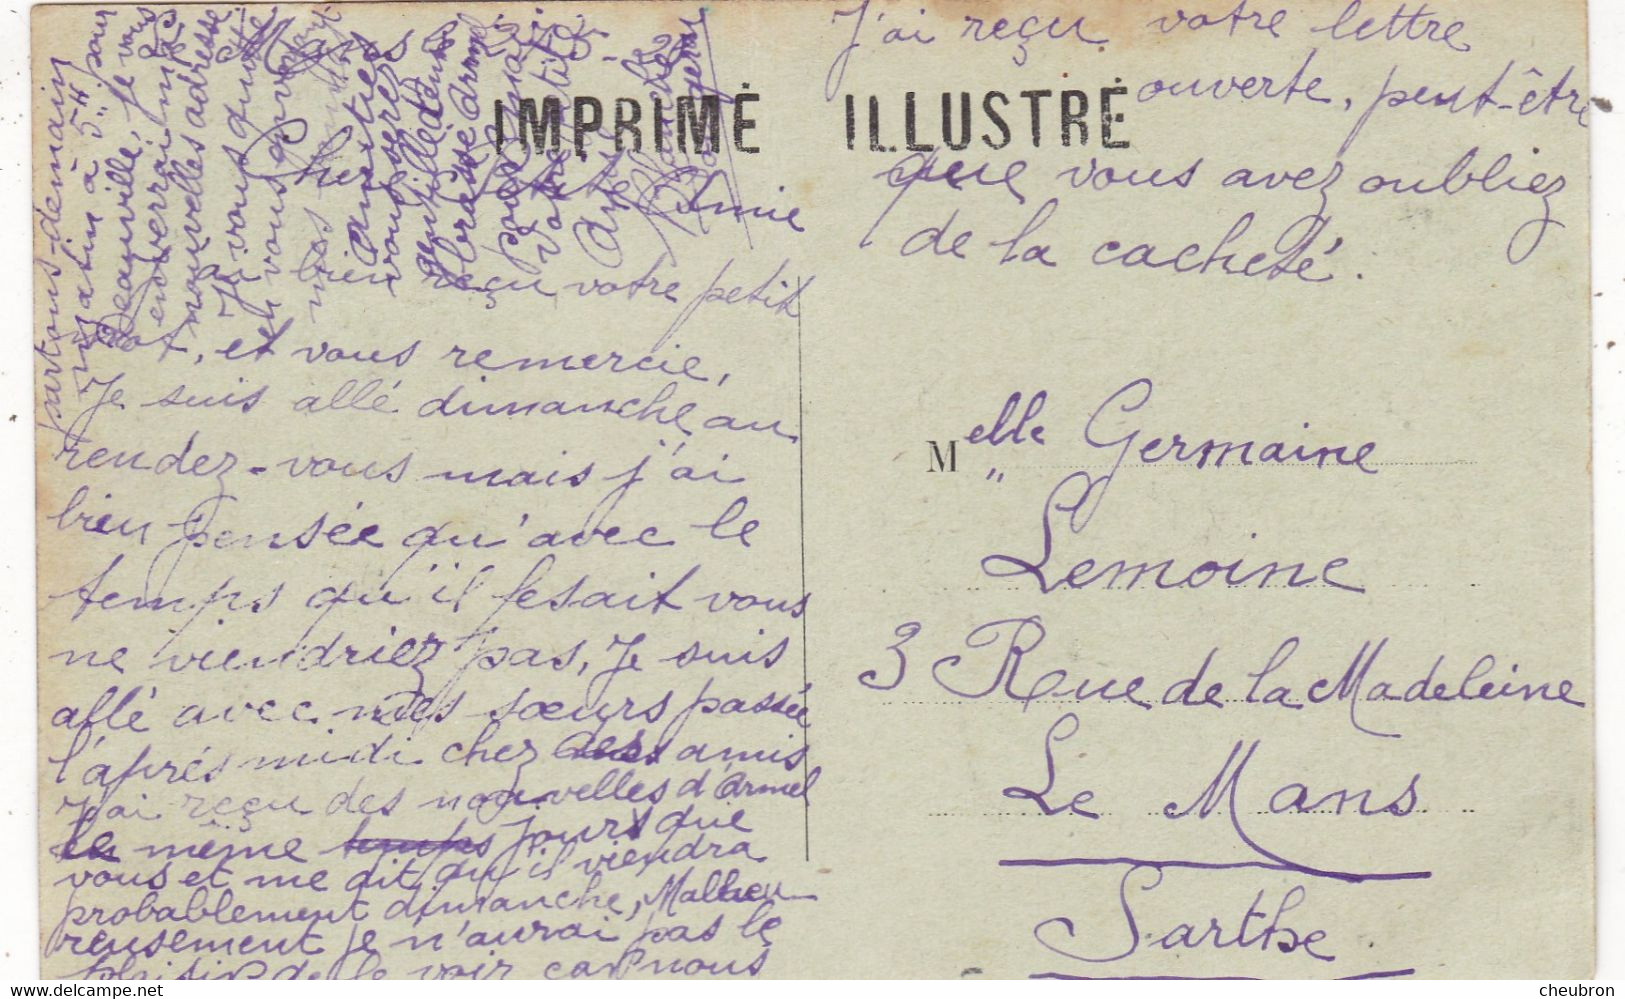 IMPRIMÉ ILLUSTRÉ
Amie
bien reçu votre petit
mot, et vous remercie,
Je suis allé dimanche au
rendez-vous mais j'ai
bien pensée qu'avec le
temps qu'il fesait vous
ne viendriez pas, Je suis
allé avec mes sœurs passée
l'après midi chez des amis
J'ai reçu des nouvelles d'Armel
le même temps jours que
vous et me dit qu'il viendra
probablement dimanche, Malheu-
reusement je n'aurai pas le
plaisir de le voir car nous
partons-demain
matin à 5.H pour
Deauville, Je vous
enverrai mes
nouvelles adresse
Je vous quitte
en vous
mes
amitiés
vous serez
gentille de
votre petite
Amie
J'ai reçu votre lettre
ouverte, peut-être
que vous avez oubliez
de la cacheté.
Melle Germaine
Lemoine
3 Rue de la Madeleine
Le Mans
Sarthe
cheubron @ delcampe.net